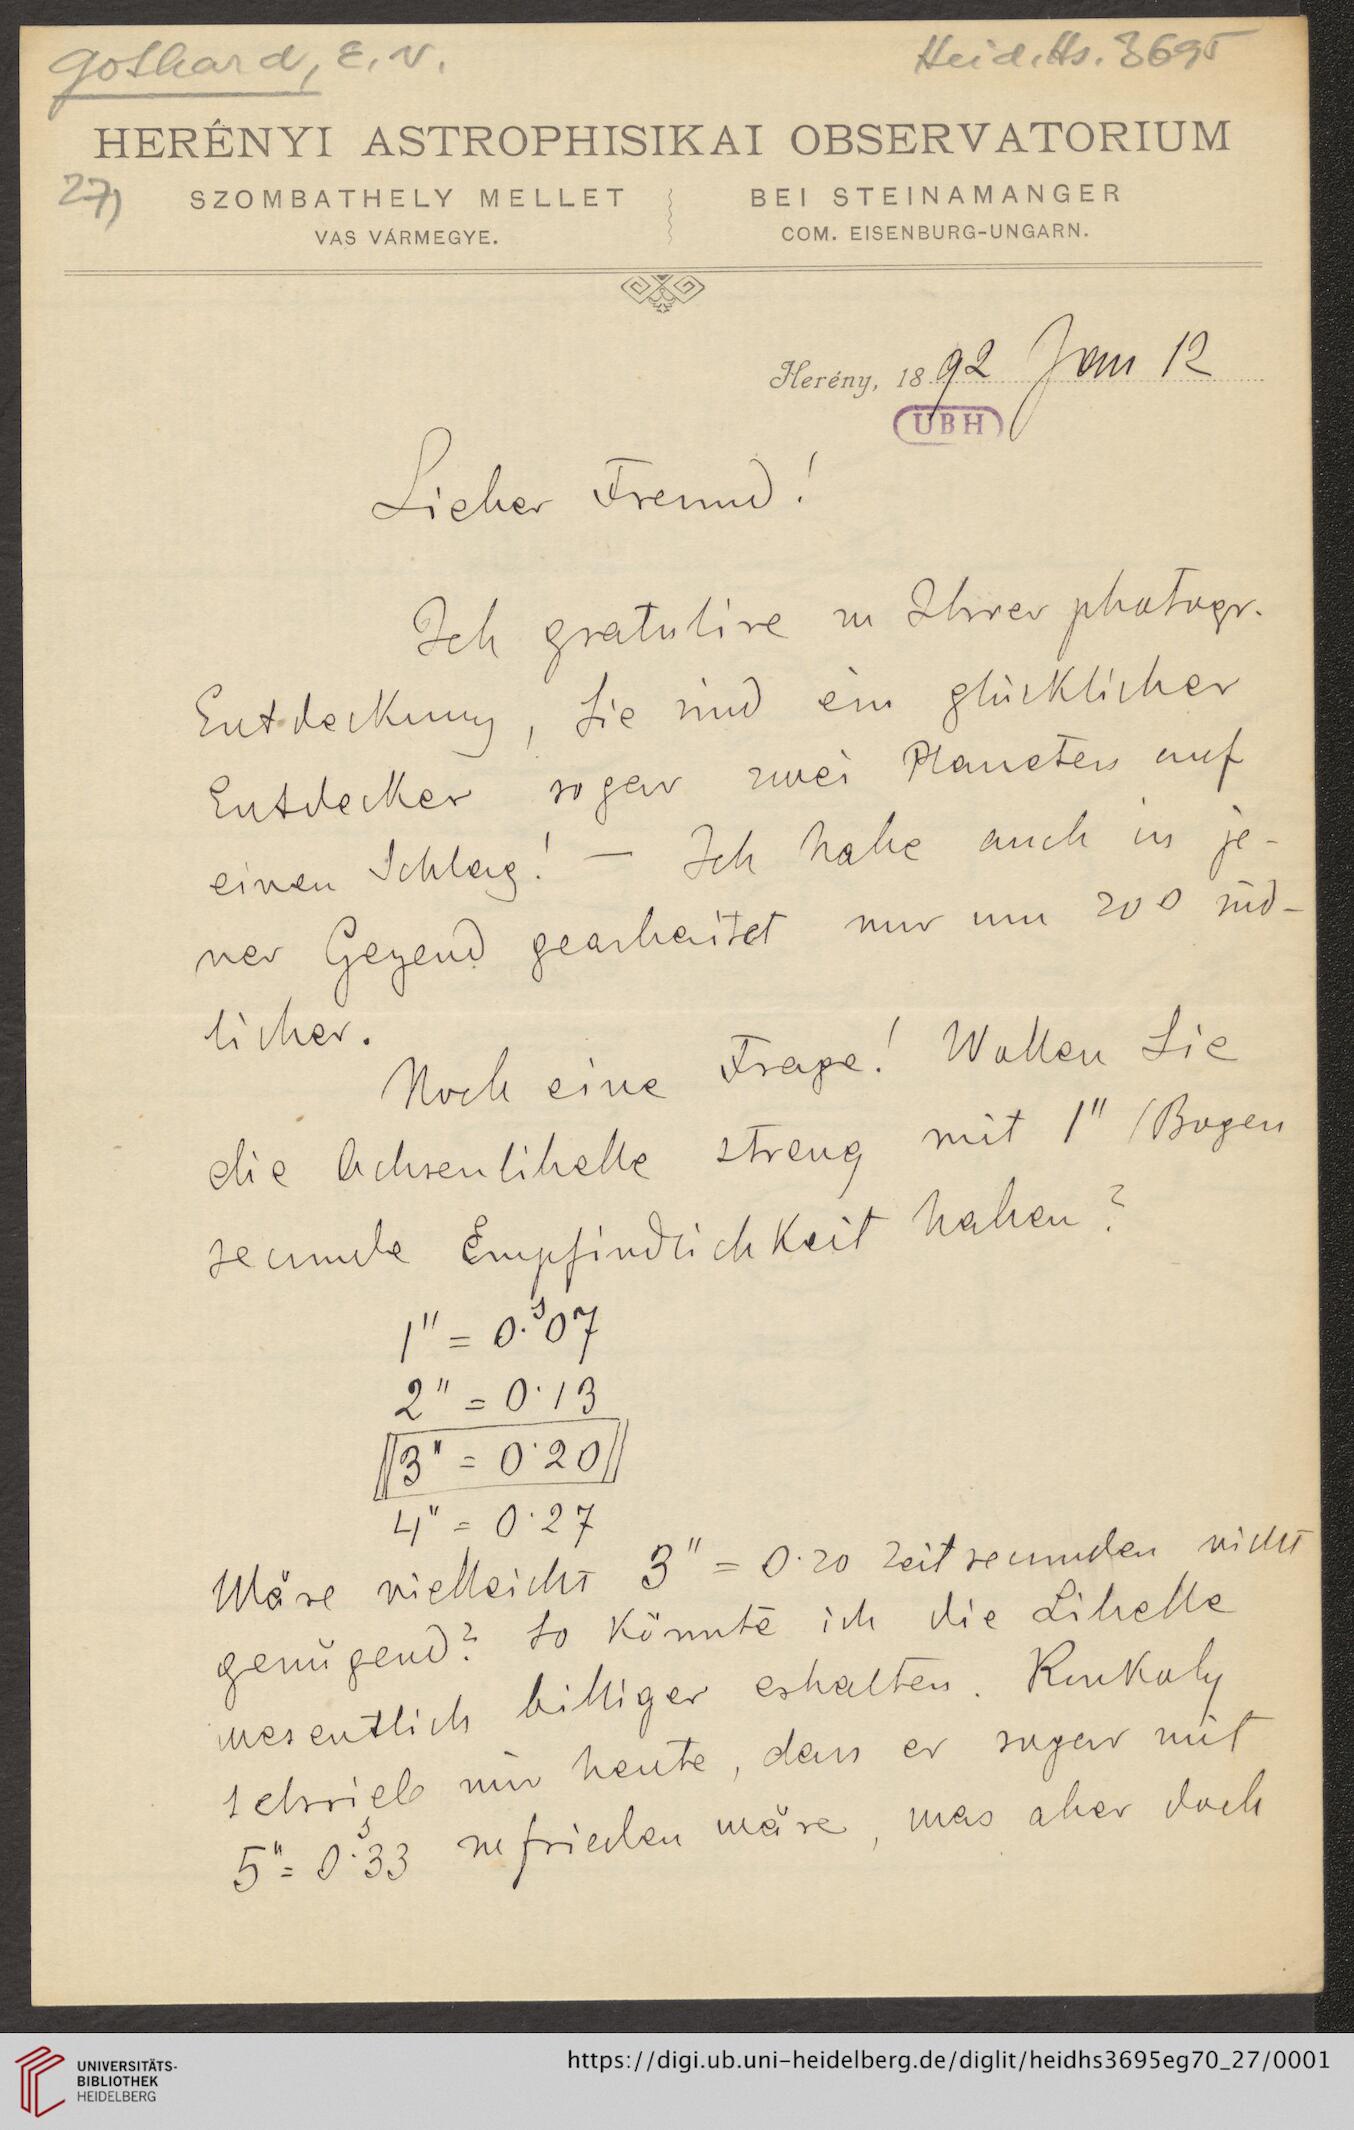 Gothard, E. v.
Heid. Hs. 3695
HERÉNYI ASTROPHISIKAI OBSERVATORIUM
27)
SZOMBATHELY MELLET
VAS VÁRMEGYE.
BEI STEINAMANGER
COM. EISENBURG-UNGARN.
Herény, 1892 Jan 12
UBH
Lieber Freund!
Ich gratulire zu Ihrer photogr.
Entdeckung, Sie sind ein glücklicher
Entdecker sogar zwei Planeten auf
einen Schlag! — Ich habe auch in je-
ner Gegend gearbeitet nur um 20° süd-
licher.
Noch eine Frage! Wollen Sie
die Achsenlibelle streng mit 1" /Bogen
secunde Empfindlichkeit haben?
1" = 0.ˢ07
2" = 0.13
3" = 0.20
4" = 0.27
Wäre vielleicht 3" = 0.20 Zeitsecunden nicht
genügend? So könnte ich die Libelle
wesentlich billiger erhalten. Konkoly
schrieb mir heute, dass er sogar mit
5" = 0.ˢ33 zufrieden wäre, was aber doch
UNIVERSITÄTS-
BIBLIOTHEK
HEIDELBERG
https://digi.ub.uni-heidelberg.de/diglit/heidhs3695eg70_27/0001